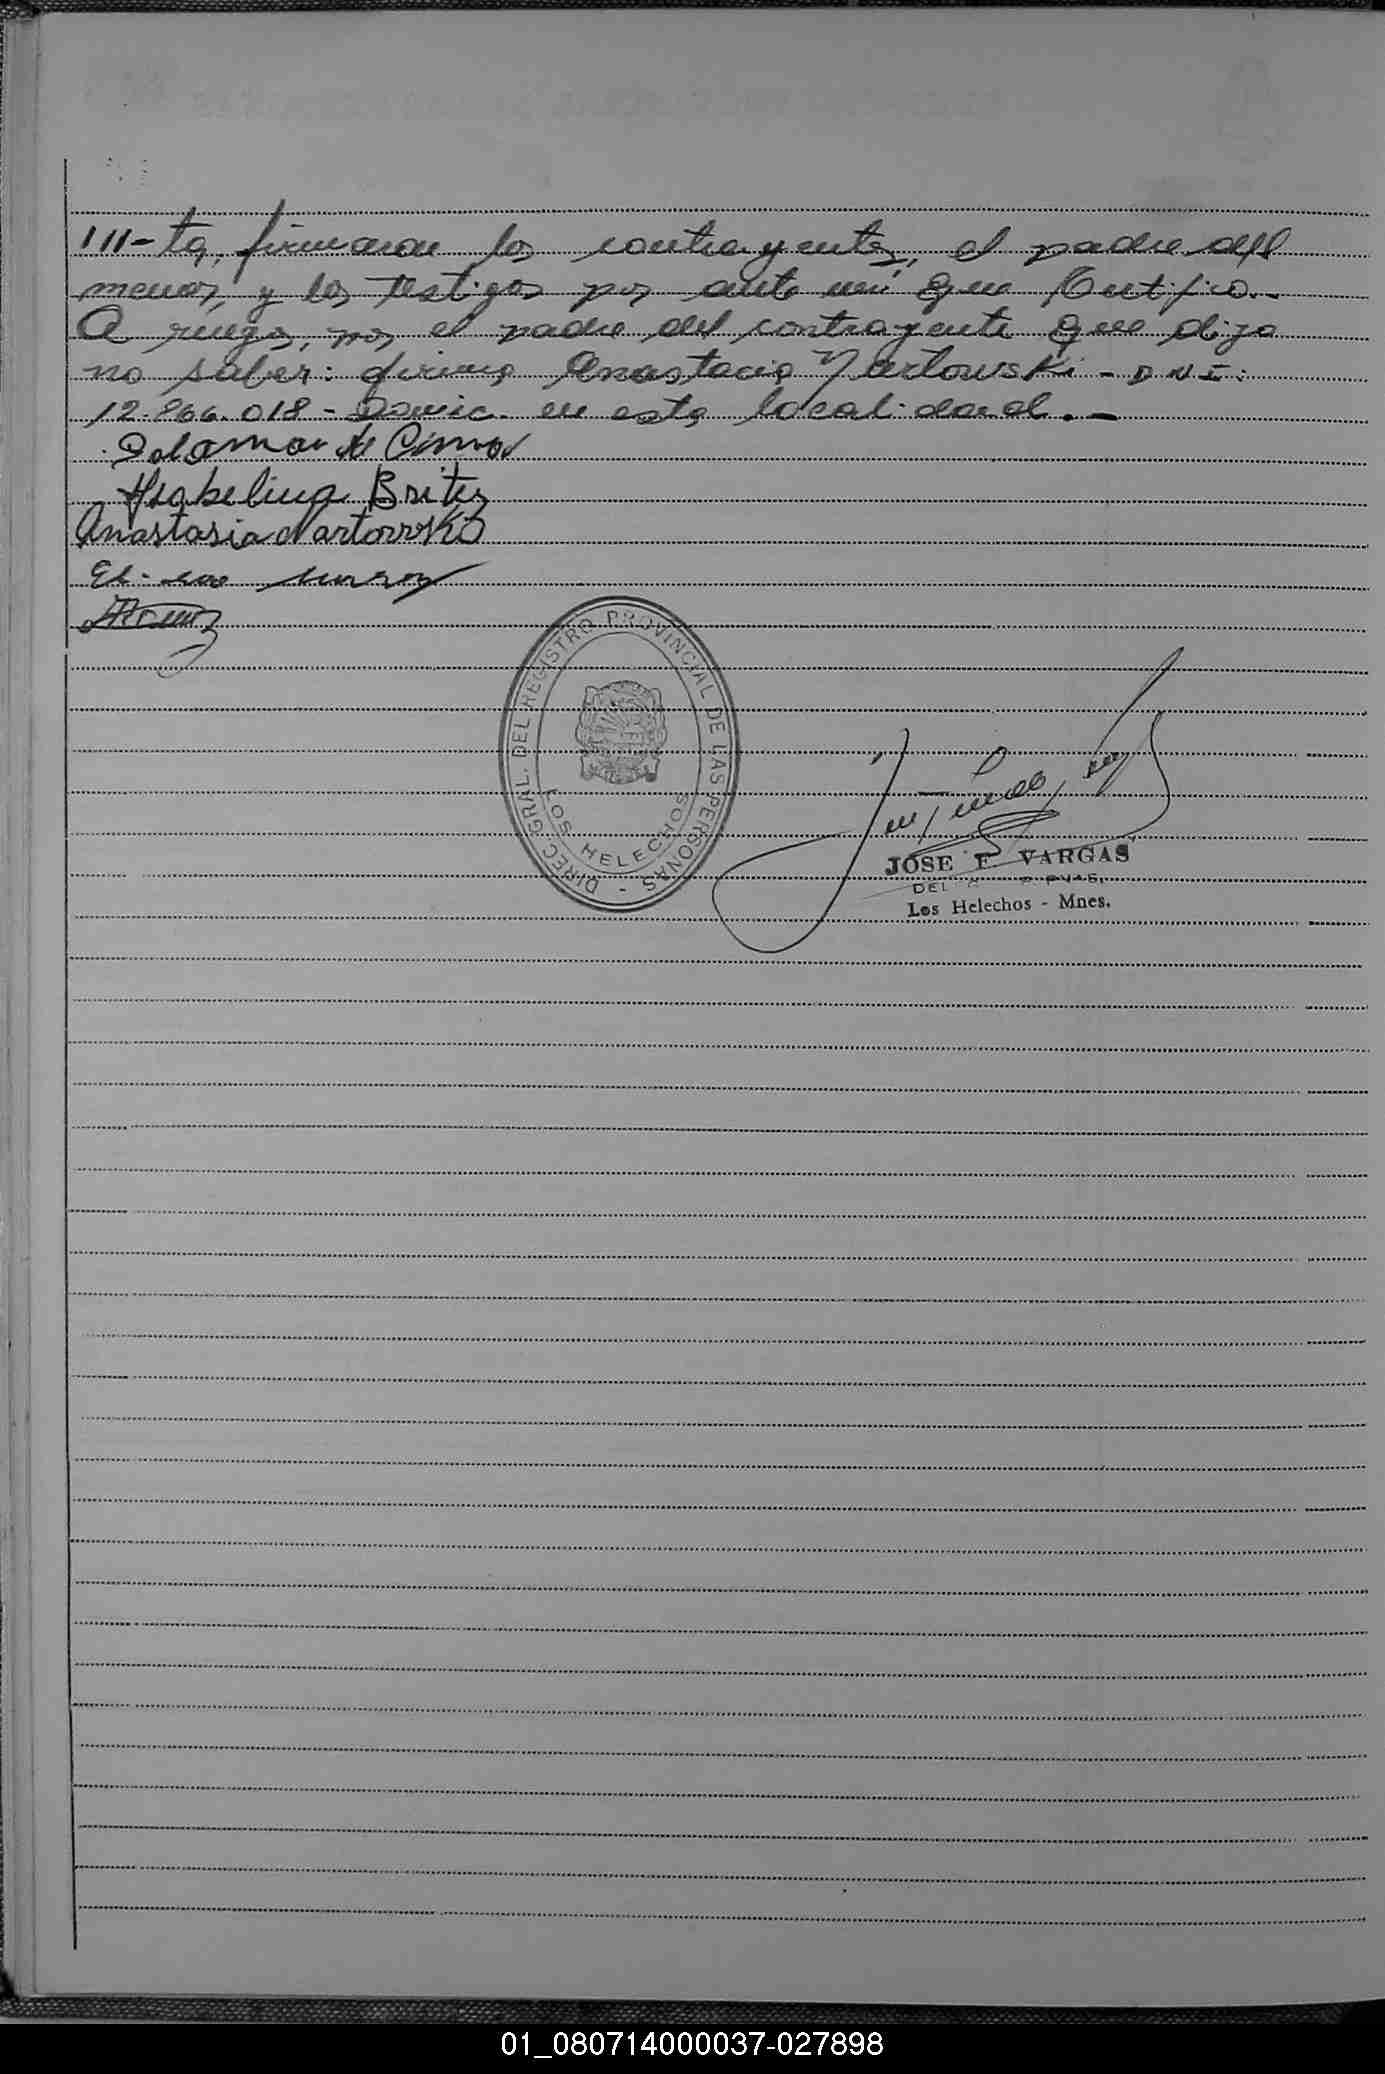 111-ta, firmaron los contrayentes, el padre del
menor, y los testigos por ante mi que Certifico.-
A ruego, por el padre del contrayente que dijo
no saber: firma Anastacia Nartowski - DNI:
12.866.018 - Domic. en esta localidad.-
Isabelina Britez
Anastasia Nartowski
DIREC. GRAL. DEL REGISTRO PROVINCIAL DE LAS PERSONAS -
LOS HELECHOS
JOSE F. VARGAS
DEL
Los Helechos - Mnes.
01_080714000037-027898